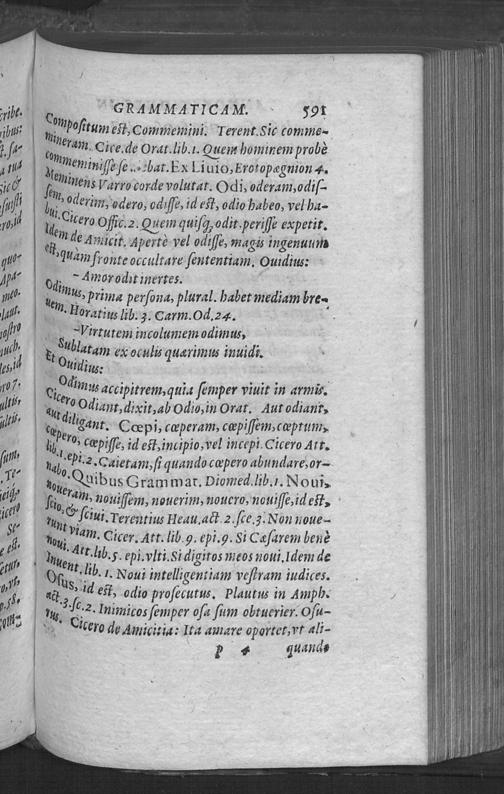 GRAMMATICAM. 591
Compositum est, Commemini. Terent. Sic comme-
mineram. Cice. de Orat. lib. 1. Quem hominem probè
commeminisse se .. bat. Ex Liuio, Erotopægnion 4.
Meminens Varro corde volutat. Odi, oderam, odis-
sem, oderim, odero, odisse, id est, odio habeo, vel ha-
bui. Cicero Offic. 2. Quem quisq; odit. perisse expetit.
Idem de Amicit. Apertè vel odisse, magis ingenuum
est, quàm fronte occultare sententiam. Ouidius:
– Amor odit inertes.
Odimus, prima persona, plural. habet mediam bre-
uem. Horatius lib. 3. Carm. Od. 24.
–Virtutem incolumem odimus,
Sublatam ex oculis quærimus inuidi.
Et Ouidius:
Odimus accipitrem, quia semper viuit in armis.
Cicero Odiant, dixit, ab Odio, in Orat. Aut odiant,
aut diligant. Cœpi, cœperam, cœpissem, cœptum,
cœpero, cœpisse, id est, incipio, vel incepi. Cicero Att.
lib. 1. epi. 2. Caietam, si quando cœpero abundare, or-
nabo. Quibus Grammat. Diomed. lib. 1. Noui,
noueram, nouissem, nouerim, nouero, nouisse, id est,
scio, & sciui. Terentius Heau. act. 2. sce. 3. Non noue-
runt viam. Cicer. Att. lib. 9. epi. 9. Si Cæsarem benè
noui. Att. lib. 5. epi. vlti. Si digitos meos noui. Idem de
Inuent. lib. 1. Noui intelligentiam vestram iudices.
Osus, id est, odio prosecutus. Plautus in Amph.
act. 3. sc. 2. Inimicos semper osa sum obtuerier. Osu-
rus. Cicero de Amicitia: Ita amare oportet, vt ali-
p 4 quando